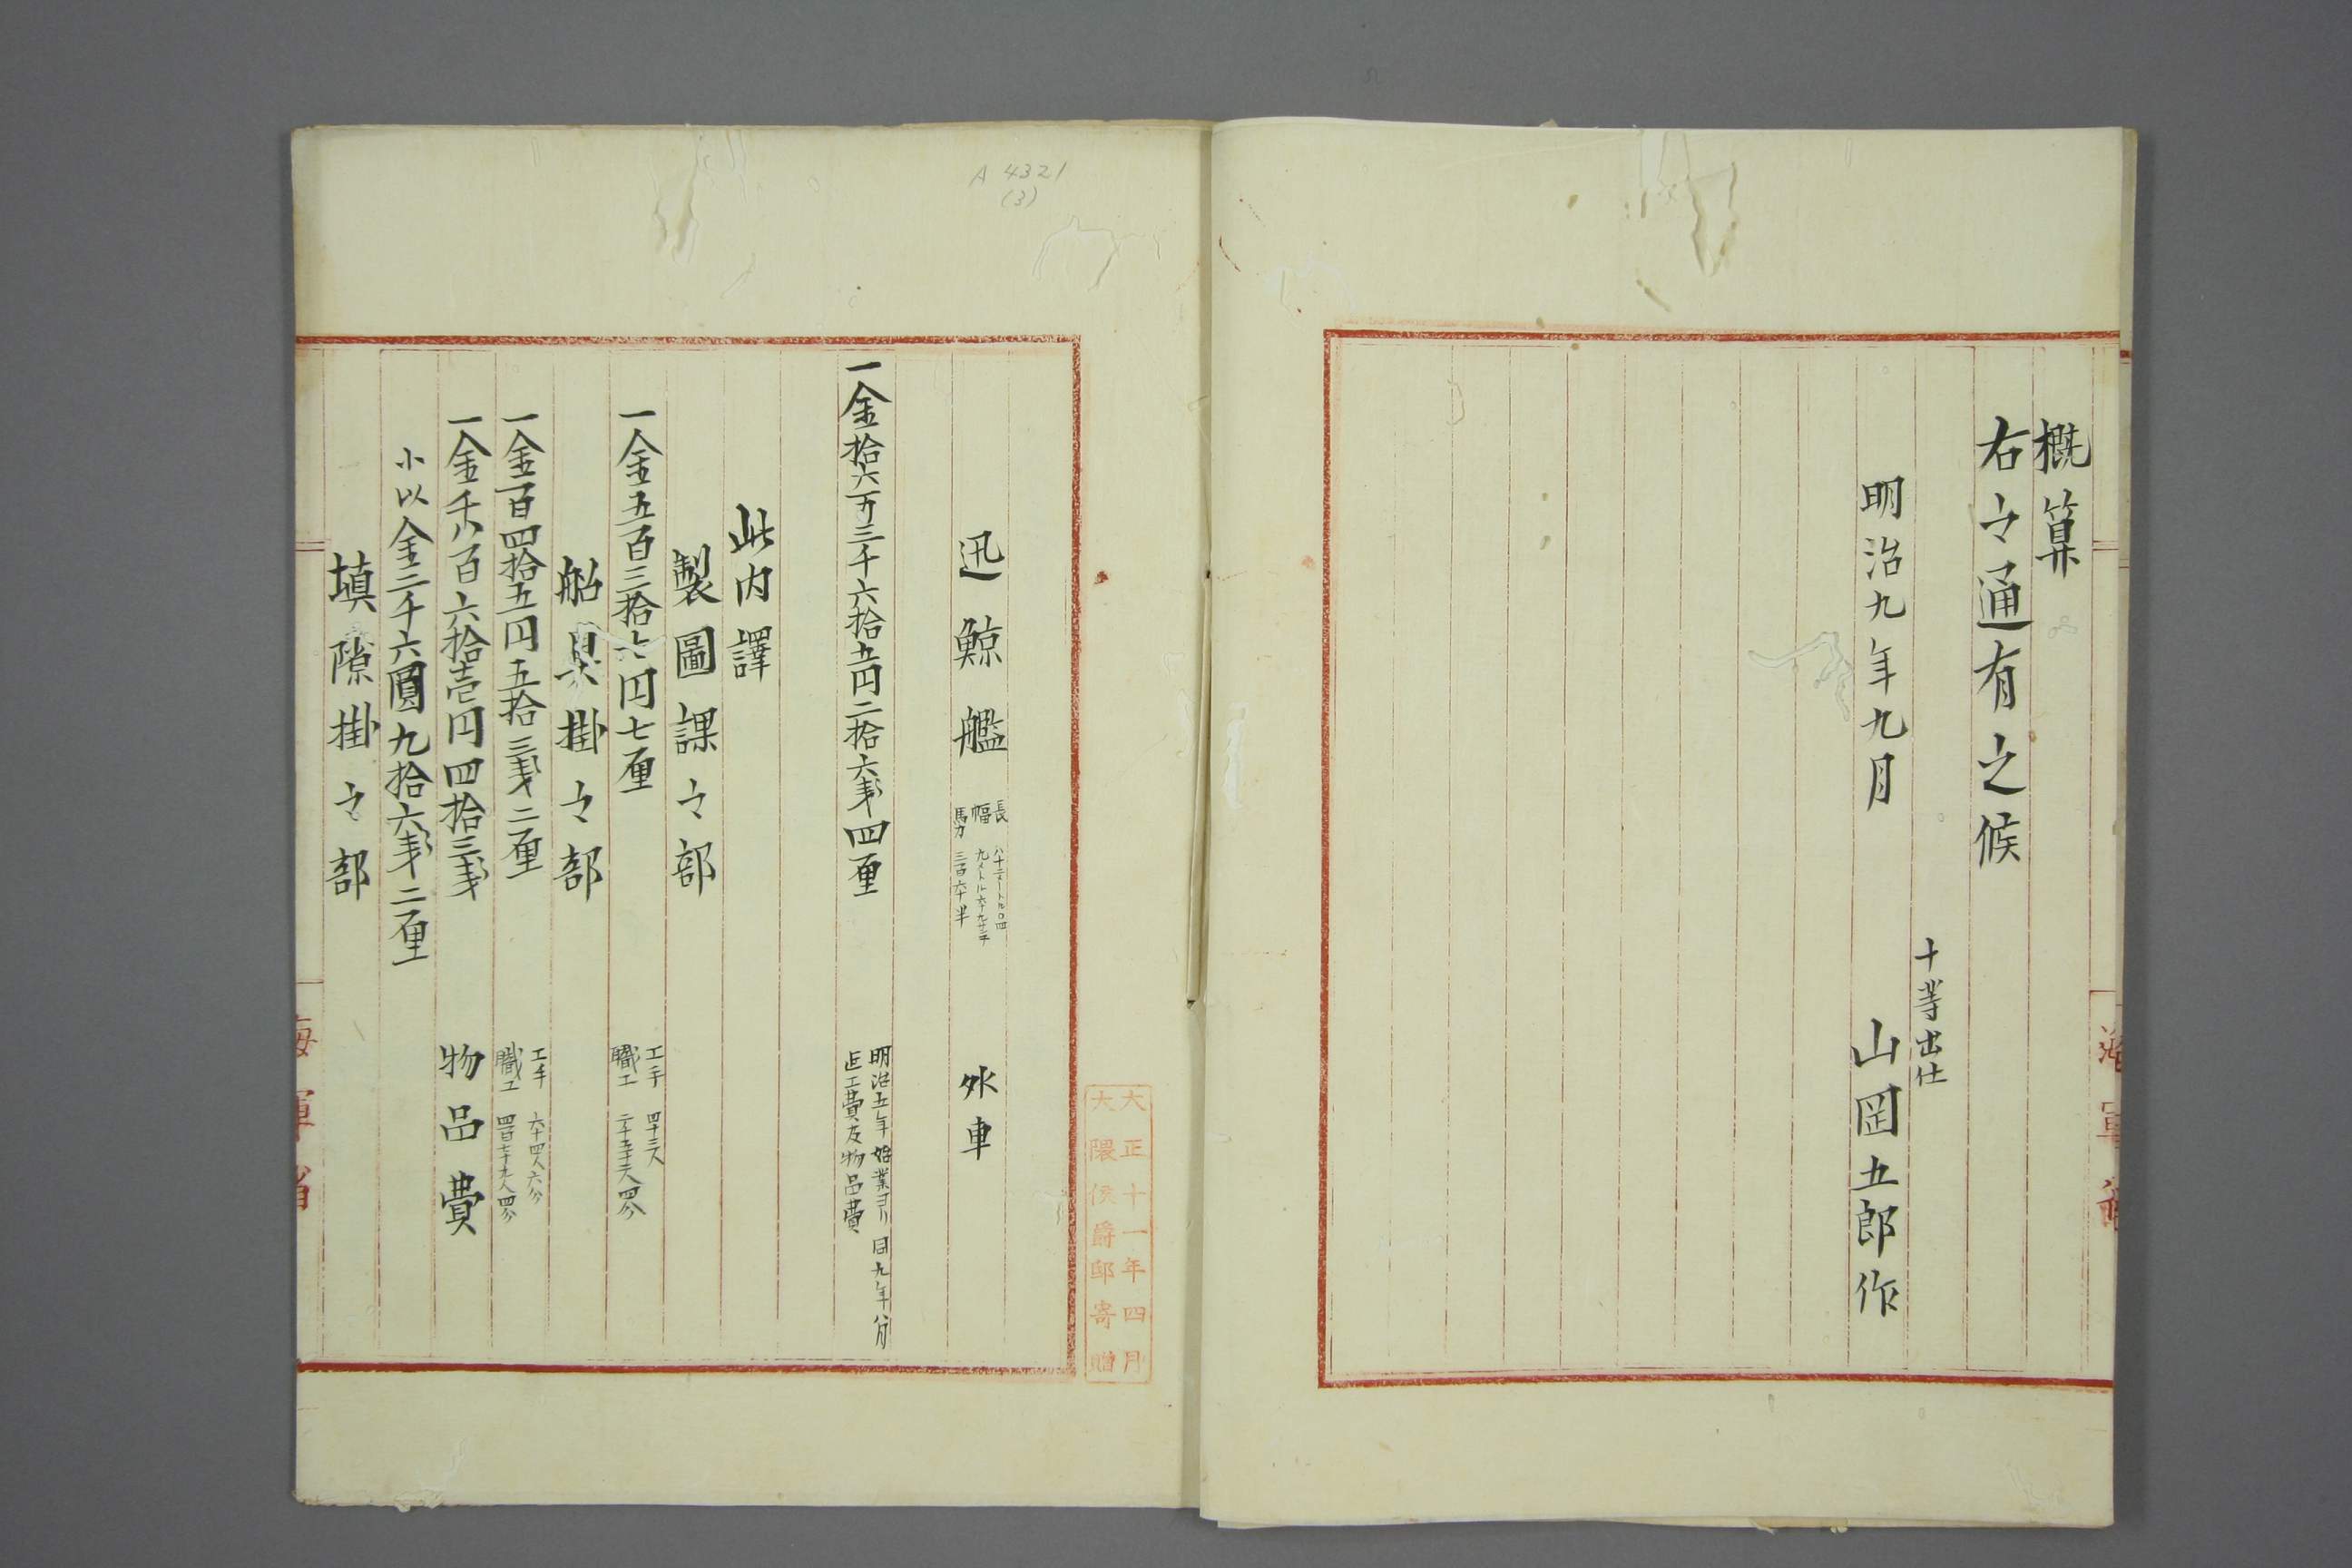 概算
右之通有之候
十等出仕
明治九年九月 山岡五郎作
海軍省
A 4321
(3)
大正十一年四月
大隈侯爵邸寄贈
迅鯨艦 外車
長
幅
馬力 三百六十半
一金拾六万三千六拾五円二拾六銭四厘
明治五年始業ヨリ同九年八月
迄工費及物品費
此内譯
製圖課之部
一金五百三拾六円七厘
工手 四十三人
職工
船具掛之部
一金百四拾五円五拾三銭二厘
工手 六十四人六分
職工 四百七十九人四分
一金千八百六拾壱円四拾三銭 物品費
小以金二千六圓九拾六銭二厘
填隙掛之部
海軍省